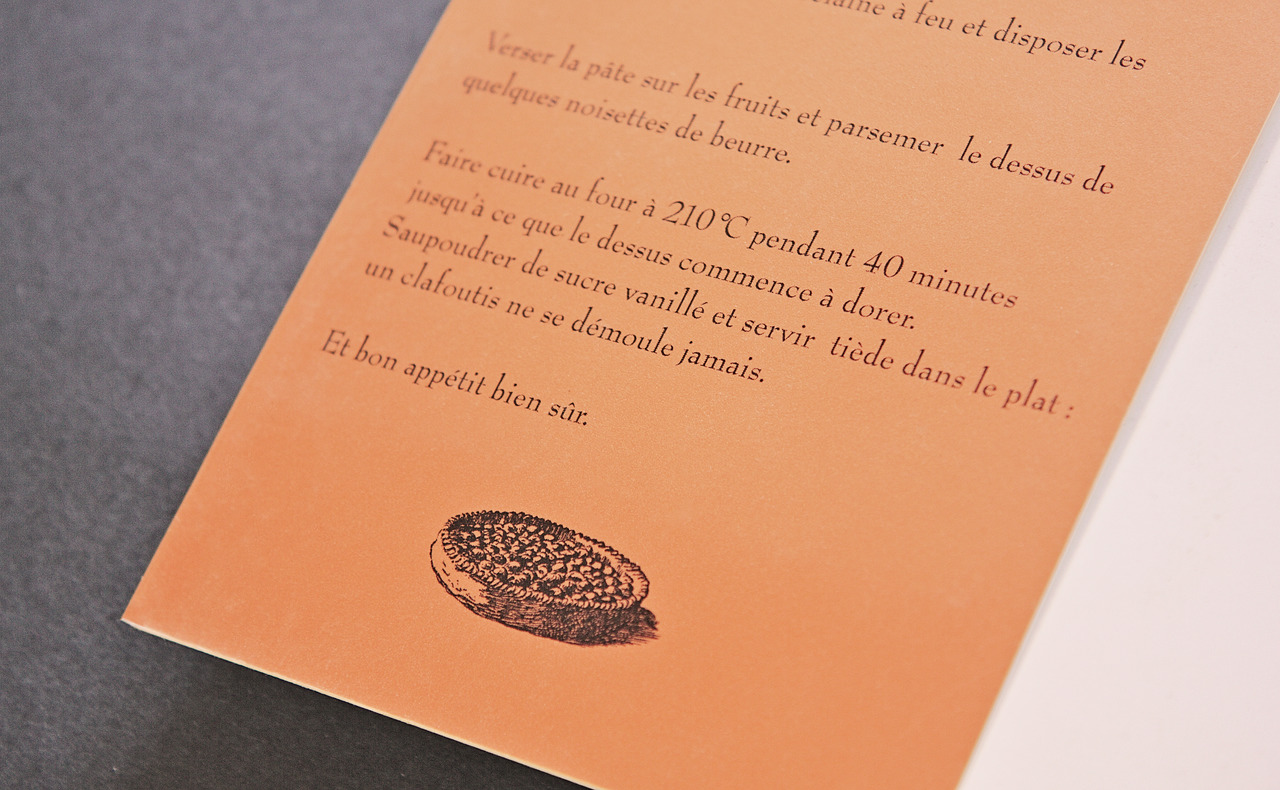 à feu et disposer les
Verser la pâte sur les fruits et parsemer le dessus de
quelques noisettes de beurre.
Faire cuire au four à 210°C pendant 40 minutes
jusqu'à ce que le dessus commence à dorer.
Saupoudrer de sucre vanillé et servir tiède dans le plat :
un clafoutis ne se démoule jamais.
Et bon appétit bien sûr.